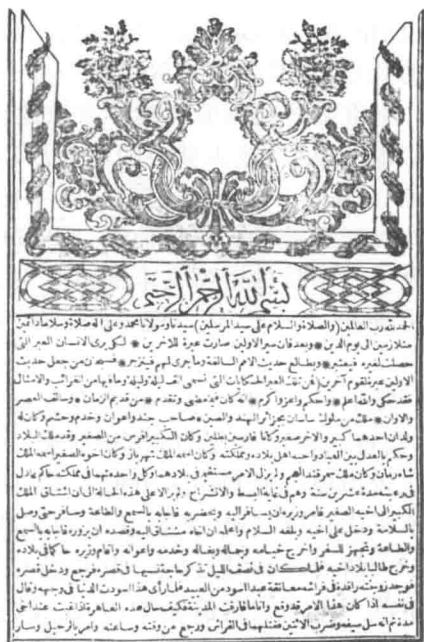 بسم الله الرحمن الرحيم
الحمد لله رب العالمين (والصلاة والسلام على سيد المرسلين) سيدنا ومولانا محمد وعلى اله صلاة وسلاما دائمين
متلازمين الى يوم الدين * وبعد فان سير الاولين صارت عبرة للاخرين * لكى يرى الانسان العبر التى
حصلت لغيره فيعتبر * ويطالع حديث الامم السالفة وما جرى لهم فينزجر * فسبحان من جعل حديث
الاولين عبرة لقوم آخرين (فمن تلك العبر الحكايات التى تسمى الف ليلة وليلة وما فيها من الغرائب والامثال
فقد حكى والله اعلم * واحكم واعز واكرم * انه كان فيما مضى وتقدم * من قديم الزمان * وسالف العصر
والاوان * ملك من ملوك ساسان بجزائر الهند والصين * صاحب جند واعوان وخدم وحشم وكان له
ولدان احدهما كبير والاخر صغير وكانا فارسين بطلين وكان الكبير افرس من الصغير وقد ملك البلاد
وحكم بالعدل بين العباد واحبه اهل بلاده ومملكته وكان اسمه الملك شهرباز وكان اخوه الصغير اسمه الملك
شاه زمان وكان ملك سمرقند العجم ولم يزل الامر مستقيم فى بلادهما وكل واحد منهما فى مملكته حاكم عادل
فى رعيته مدة عشرين سنة وهم فى غاية البسط والانشراح ولم يزالا على هذه الحالة الى ان اشتاق الملك
الكبير الى اخيه الصغير فامر وزيره ان يسافر اليه ويحضر به فاجابه بالسمع والطاعة وسافر حتى وصل
بالسلامة ودخل على اخيه وبلغه السلام واعلمه ان اخاه مشتاق اليه وقصده ان يزوره فاجابه بالسمع
والطاعة وتجهز للسفر واخرج خيامه وجماله وبغاله وخدمه واعوانه واقام وزيره حاكما فى بلاده
وخرج طالبا بلاد اخيه فلما كان فى نصف الليل تذكر حاجة نسيها فى قصره فرجع ودخل قصره
فوجد زوجته راقدة فى فراشه معانقة عبدا اسود من العبيد فلما رأى هذا اسودت الدنيا فى وجهه وقال
فى نفسه اذا كان هذا الامر قد وقع وانا ما فارقت المدينة فكيف حال هذه العاهرة اذا غبت عند اخى
مدة ثم انه سل سيفه وضرب الاثنين فقتلهما فى الفراش ورجع من وقته وساعته وامر بالرحيل وسار